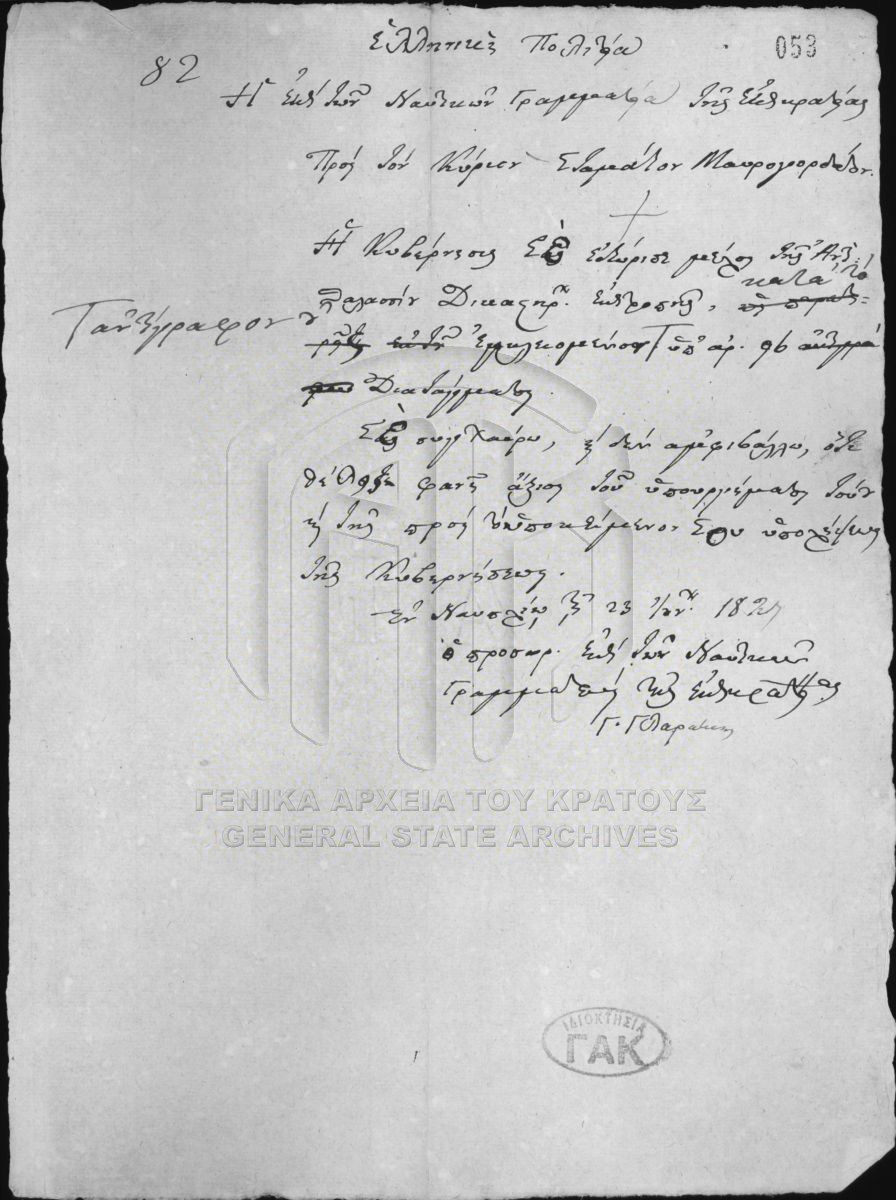 Ἑλληνικὴ Πολιτεία
053
82
Ἡ Ἐπὶ τῶν Ναυτικῶν Γραμματεία τῆς Ἐπικρατείας
Πρὸς τὸν Κύριον Σταμάτιον Μαυρογορδάτον.
Ἡ Κυβέρνησις Σᾶς ἐδιώρισε μέλος τῆς Ἀντι-
κατὰ τὸ
θαλασσίου Δικαστηρ. Ἐπιτροπῆς,
Γἀντίγραφον
ἐγκλειομένον Γ ὑπ' ἀρ. 96
Διατάγματος.
Σᾶς συγχαίρω, κ δὲν ἀμφιβάλλω, ὅτι
θέλετε φανῆ ἄξιος τοῦ ὑπουργήματος τούτου
κ τῆς πρὸς τὸ ὑποκείμενόν Σου ὑπολήψεως
τῆς Κυβερνήσεως.
Ἐν Ναυπλίῳ τῇ 23 182
ὁ προσωρ. ἐπὶ τῶν Ναυτικῶν
Γραμματεὺς τῆς ἐπικρατείας
Γ. Γλαράκης
ΓΕΝΙΚΑ ΑΡΧΕΙΑ ΤΟΥ ΚΡΑΤΟΥΣ
GENERAL STATE ARCHIVES
ΙΔΙΟΚΤΗΣΙΑ
ΓΑΚ